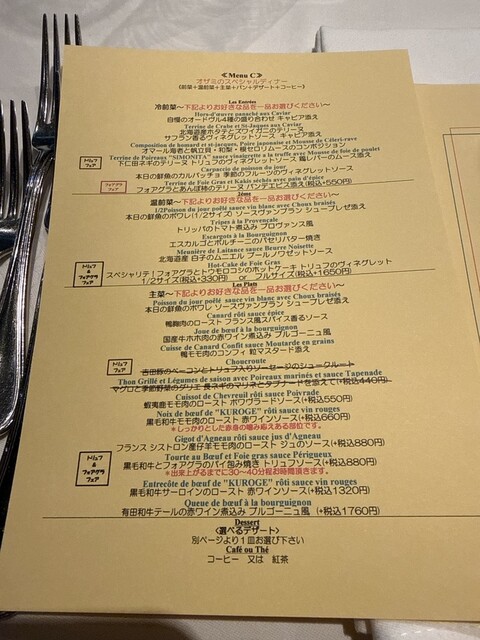 ≪Menu C≫
オザミのスペシャルディナー
(前菜+温前菜+主菜+パン+デザート+コーヒー)
Les Entrées
冷前菜～下記よりお好きな品を一品お選びください～
Hors-d'œuvre panaché aux Caviar
自慢のオードヴル4種の盛り合わせ キャビア添え
Terrine de Crabe et St-Jaques aux Caviar
北海道産ホタテとズワイガニのテリーヌ
サフラン香るヴィネグレットソース キャビア添え
Composition de homard et st-jacques, Poire japonaise et Mousse de Céleri-rave
オマール海老と帆立貝・和梨・根セロリムースのコンポジション
Terrine de Poireaux "SIMONITA" sauce vinaigrette a la truffe avec Mousse de foie de poulet
トリュフ フェア
下仁田ネギのテリーヌ トリュフのヴィネグレットソース 鶏レバーのムース添え
Carparcio de poisson du jour
本日の鮮魚のカルパッチョ 季節のフルーツのヴィネグレットソース
Terrine de Foie Gras et Kakis séchés avec pain d'épice
フォアグラ フェア
フォアグラとあんぽ柿のテリーヌ パンデエピス添え(+税込550円)
2ème
温前菜～下記よりお好きな品を一品お選びください～
1/2Poisson du jour poêlé sauce vin blanc avec Choux braisés
本日の鮮魚のポワレ(1/2サイズ) ソースヴァンブラン シューブレゼ添え
Tripes à la Provençale
トリッパのトマト煮込み プロヴァンス風
Escargots à la Bourguignon
エスカルゴとポルチーニのパセリバター焼き
Meunière de Laitance sauce Beurre Noisette
北海道産 白子のムニエル ブールノワゼットソース
Hot-Cake de Foie Gras
トリュフ & フォアグラ フェア
スペシャリテ!フォアグラとトウモロコシのホットケーキ トリュフのヴィネグレット
1/2サイズ(+税込330円) or フルサイズ(+税込1650円)
Les Plats
主菜～下記よりお好きな品を一品お選びください～
Poisson du jour poêlé sauce vin blanc avec Choux braisés
本日の鮮魚のポワレ ソースヴァンブラン シューブレゼ添え
Canard rôti sauce épice
鴨胸肉のロースト フランス風スパイス香るソース
Joue de bœuf à la bourguignon
国産牛ホホ肉の赤ワイン煮込み ブルゴーニュ風
Cuisse de Canard Confit sauce Moutarde en grains
鴨モモ肉のコンフィ 粒マスタード添え
Choucroute
トリュフ フェア
吉田豚のベーコンとトリュフ入りソーセージのシュークルート
Thon Grillé et Légumes de saison avec Poireaux marinés et sauce Tapenade
マグロと季節野菜のグリエ 長ネギのマリネとタプナードを添えて(+税込440円)
Cuissot de Chevreuil rôti sauce Poivrade
蝦夷鹿モモ肉のロースト ポワヴラードソース(+税込550円)
Noix de bœuf de "KUROGE" rôti sauce vin rouges
黒毛和牛モモ肉のロースト 赤ワインソース(+税込660円)
*しっかりとした赤身の噛み応えある部位です。
Gigot d'Agneau rôti sauce jus d'Agneau
フランス シストロン産仔羊モモ肉のロースト ジュのソース(+税込880円)
Tourte au Bœuf et Foie gras sauce Périgueux
トリュフ & フォアグラ フェア
黒毛和牛とフォアグラのパイ包み焼き トリュフソース(+税込880円)
*出来上がるまでに30～40分お時間頂きます。
Entrecôte de bœuf de "KUROGE" rôti sauce vin rouges
黒毛和牛サーロインのロースト 赤ワインソース(+税込1320円)
Queue de bœuf à la bourguignon
有田和牛テールの赤ワイン煮込み ブルゴーニュ風 (+税込1760円)
Dessert
<選べるデザート>
別ページより1皿お選び下さい
Café ou Thé
コーヒー 又は 紅茶